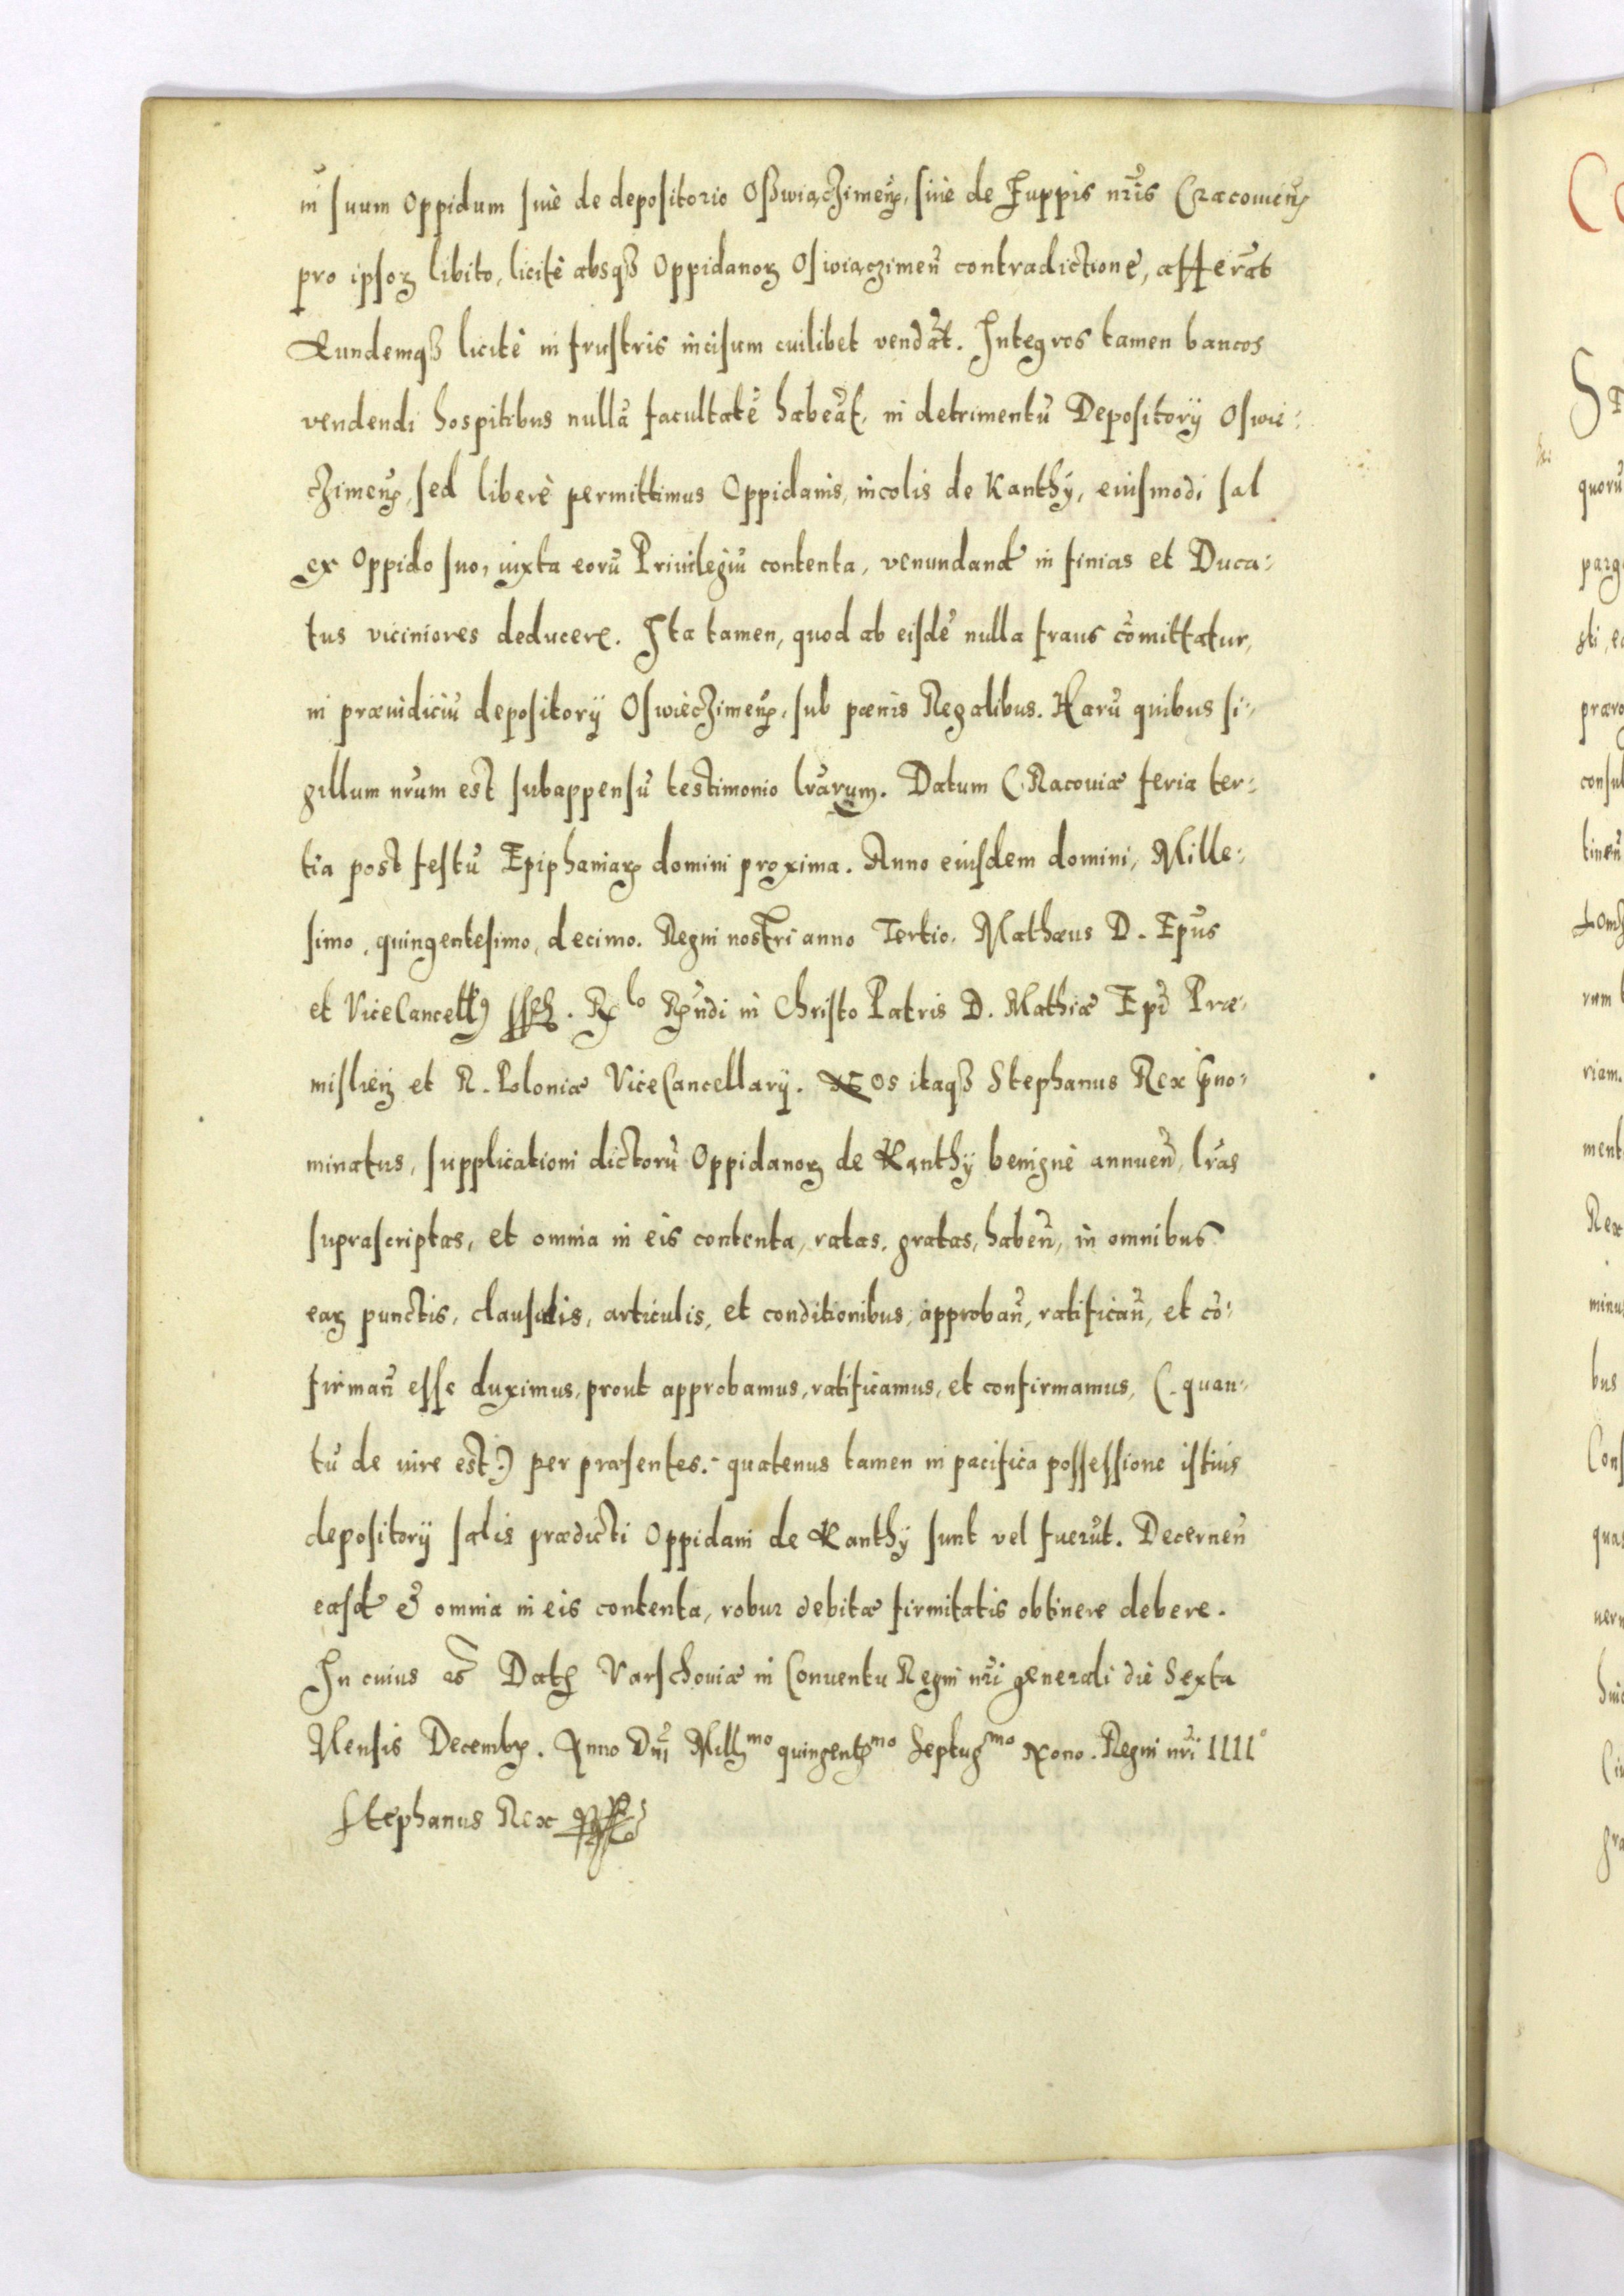 in suum Oppidum siuè de depositorio Oßwięczimen̄, siuè de Zuppis nr̄is Cracouien̄
pro ipsoꝝ libito, licitè absqꝫ Oppidanoꝝ Oswięczimen̄ contradictione, afferāt
Eundemqꝫ licitè in frustris incisum cuilibet vendāt. Integros tamen bancos
vendendi hospitibus nullā facultatē habeāt, in detrimentū Depositorij Oswie:
czimen̄, sed liberè permittimus Oppidanis, incolis de Kanthÿ, eiusmodi sal
ex Oppido suo, iuxta eorū Priuilegiū contenta, venundand in finias et Duca:
tus viciniores deducere. Ita tamen, quod ab eisdē nulla fraus cōmittatur,
in præiudiciū depositorÿ Oswiéczimen̄, sub pœnis Regalibus. Harū quibus si:
gillum nr̄um est subappensū testimonio lr̄arum. Datum Cracouiæ feria ter:
tia post festū Epiphaniaꝝ domini proxima. Anno eiusdem domini, Mille:
simo, quingentesimo, decimo. Regni nostri anno Tertio. Mathæus D. Ep̄us
et ViceCancellꝰ sst. Rlo Rn̄di in Christo Patris D. Mathiæ Ep̄i Præ:
mislien̄ et R. Poloniæ ViceCancellarÿ. Nos itaqꝫ Stephanus Rex p̄no:
minatus, supplicationi dictorū Oppidanoꝝ de Kanthÿ benignè annuen̄, lr̄as
suprascriptas, et omnia in eis contenta, ratas, gratas, haben̄, in omnibus
eaꝝ punctis, clausulis, articulis, et conditionibus, approban̄, ratifican̄, et cō:
firman̄ esse duximus, prout approbamus, ratificamus, et confirmamus, (quan:
tū de iure est) per præsentes. quatenus tamen in pacifica possessione istius
depositorÿ salis prædicti Oppidani de Kanthÿ sunt vel fuerūt. Decernen̄
easd et omnia in eis contenta, robur debitæ firmitatis obtinere debere.
In cuius Dat Varschouiæ in Conuentu Regni nr̄i generali die Sexta
Mensis Decemb. Anno Dn̄i Millmo quingentmo Septugmo Nono. Regni nr̄i IIIIº
Stephanus Rex